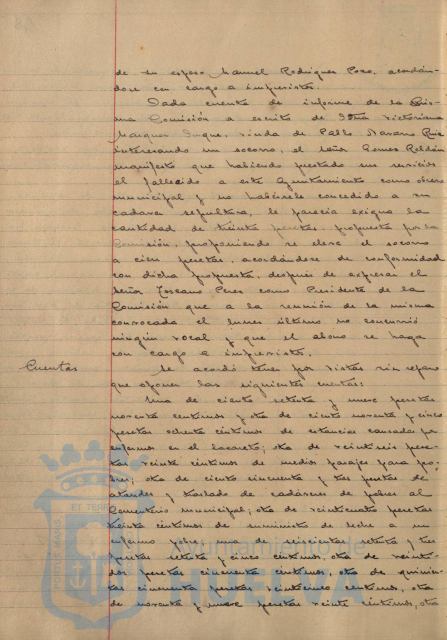 de su esposo Manuel Rodriguez Pozo, acordán-
dose con cargo a imprevistos.
Dada cuenta de informe de la
Comisión a escrito de Dña Victoriana
Marquez Duque, viuda de Pablo Navarro Ruiz
interesando un socorro, el señor Gomez Roldán
manifestó que habiendo prestado sus servicios
el fallecido a este Ayuntamiento como obrero
municipal y no habiéndole concedido a su
cadaver sepultura, le parecía exigua la
cantidad de treinta pesetas, propuesta por la
Comisión, proponiendo se eleve el socorro
a cien pesetas, acordándose de conformidad
con dicha propuesta, después de expresar el
Señor Toscano Perez como Presidente de la
Comisión que a la reunión de la misma
convocada el lunes último no concurrió
ningún vocal y que el abono se haga
con cargo a imprevistos.
Cuentas
Se acordó tener por vistas sin reparo
que oponer las siguientes cuentas:
Una de ciento setenta y nueve pesetas
noventa centimos y otra de ciento noventa y cinco
pesetas ochenta centimos de estancias causadas por
enfermos en el Lazareto; otra de veintiseis pese-
tas veinte centimos de medios pasajes para po-
bres; otra de ciento cincuenta y tres pesetas de
ataudes y traslado de cadáveres de pobres al
Cementerio municipal; otra de veinticuatro pesetas
treinta centimos de suministro de leche a un
enfermo pobre; una de seiscientas setenta y tres
pesetas setenta y cinco centimos, otra de veinti-
dos pesetas cincuenta centimos, otra de quinien-
tas cincuenta pesetas veinticinco centimos, otra
de noventa y nueve pesetas veinte centimos, otra